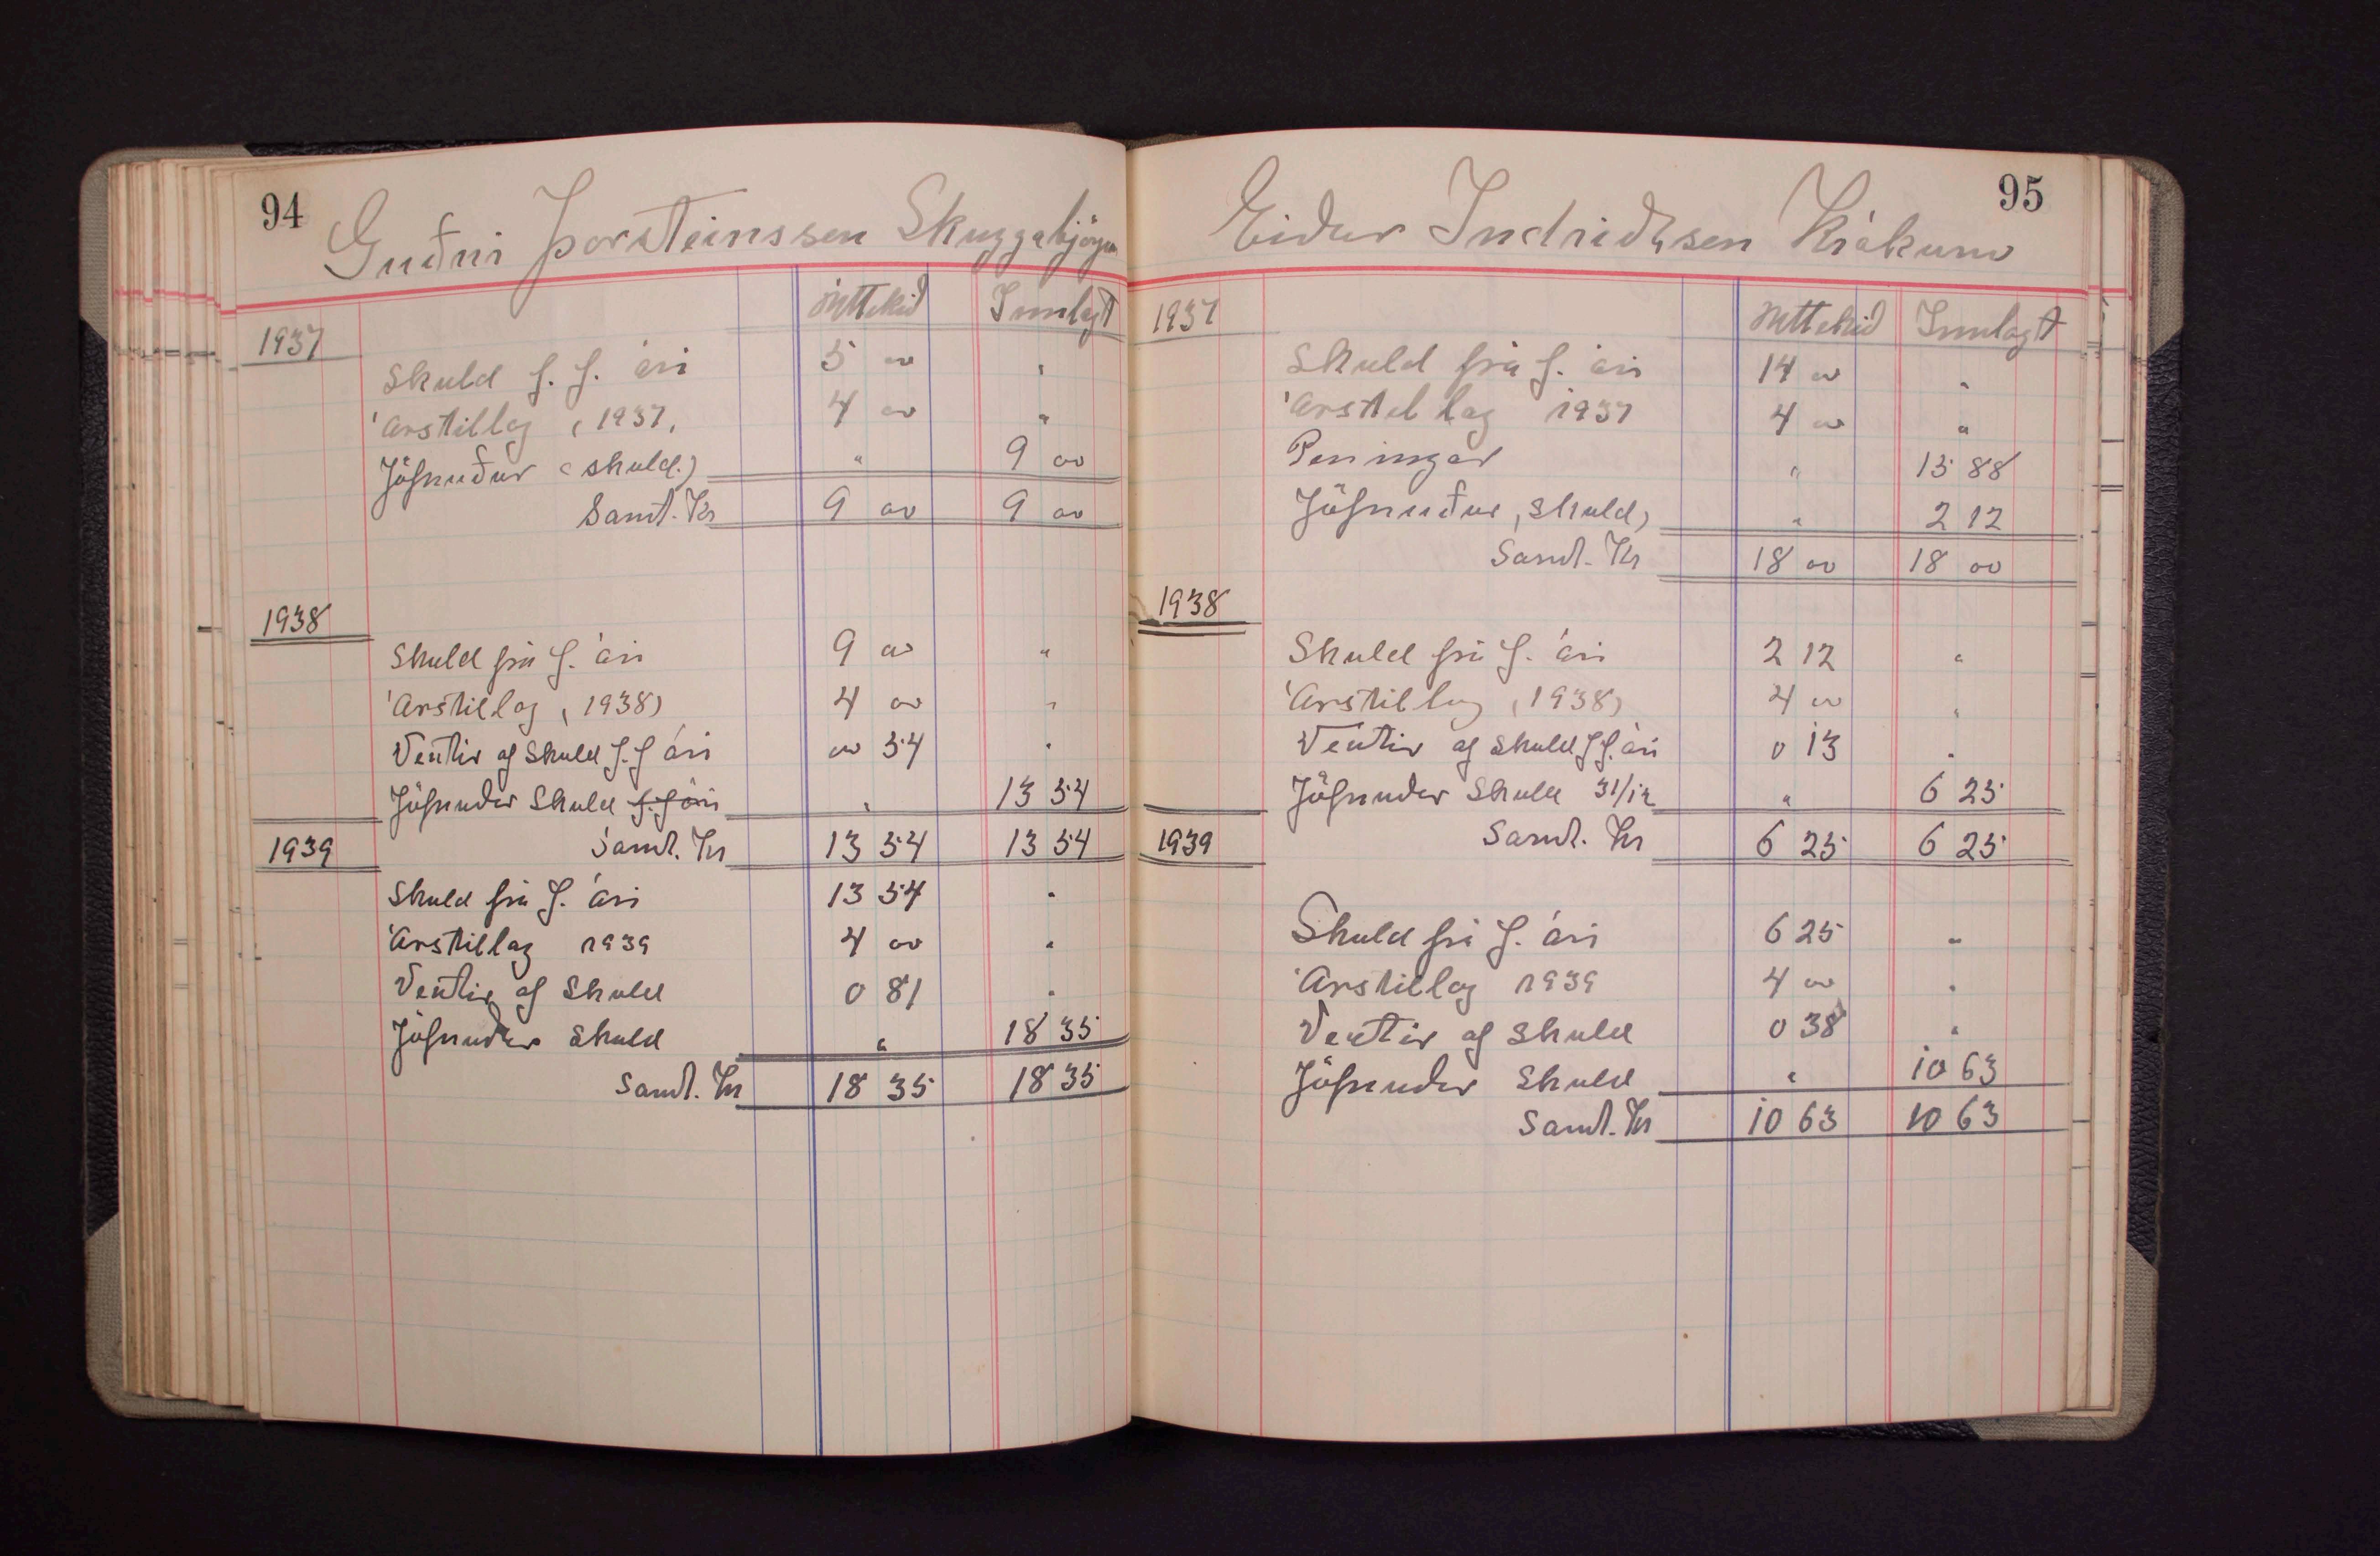 94
Guðni Þorsteinssen Skuggabjörgum
Úttekið Innlagt
1937
Skuld f. f. ári 5 00 "
Árstillag (1937, 4 00 "
Jöfnuður (skuld.) " 9 00
Samt. Kr 9 00 9 00
1938
Skuld frá f. ári 9 00 "
Árstillag (1938) 4 00 "
Vextir af skuld f. f ári 00 54 "
Jöfnuður Skuld f. f ári " 13 54
1939 Samt. Kr 13 54 13 54
Skuld frá f. ári 13 54 "
Árstillag 1939 4 00 "
Vextir af Skuld 0 81 "
Jöfnuður Skuld " 18 35
Samt. Kr 18 35 18 35
95
Eiður Indriðasen Krákum
1937 Úttekið Innlagt
Skuld frá f. ári 14 00 "
Árstillag 1937 4 00 "
Peningar " 15 88
Jöfnuður, skuld) " 2 12
Samt. Kr 18 00 18 00
1938
Skuld frá f. ári 2 12 "
Árstillag (1938) 4 00 "
Vextir af skuld f f. ári 0 13 "
Jöfnuður Skuld 31/12 " 6 25
1939 Samt. Kr 6 25 6 25
Skuld frá f. ári 6 25 "
Árstillag 1939 4 00 "
Vextir af skuld 0 38 "
Jöfnuður Skuld " 10 63
Samt. Kr 10 63 10 63